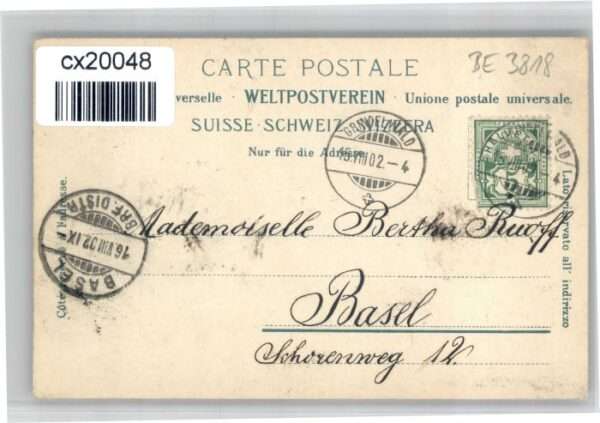 cx20048
BE 3818
CARTE POSTALE
verselle · WELTPOSTVEREIN · Unione postale universale.
SUISSE · SCHWEIZ · SVIZZERA
Nur für die Adresse.
GRINDELWALD
15.VIII.02.–4
HELVETIA
BASEL
16.VIII.02.IX
BRF. DISTR.
Mademoiselle Bertha Ruoff
Basel
Schorenweg 12.
Lato riservato all' indirizzo